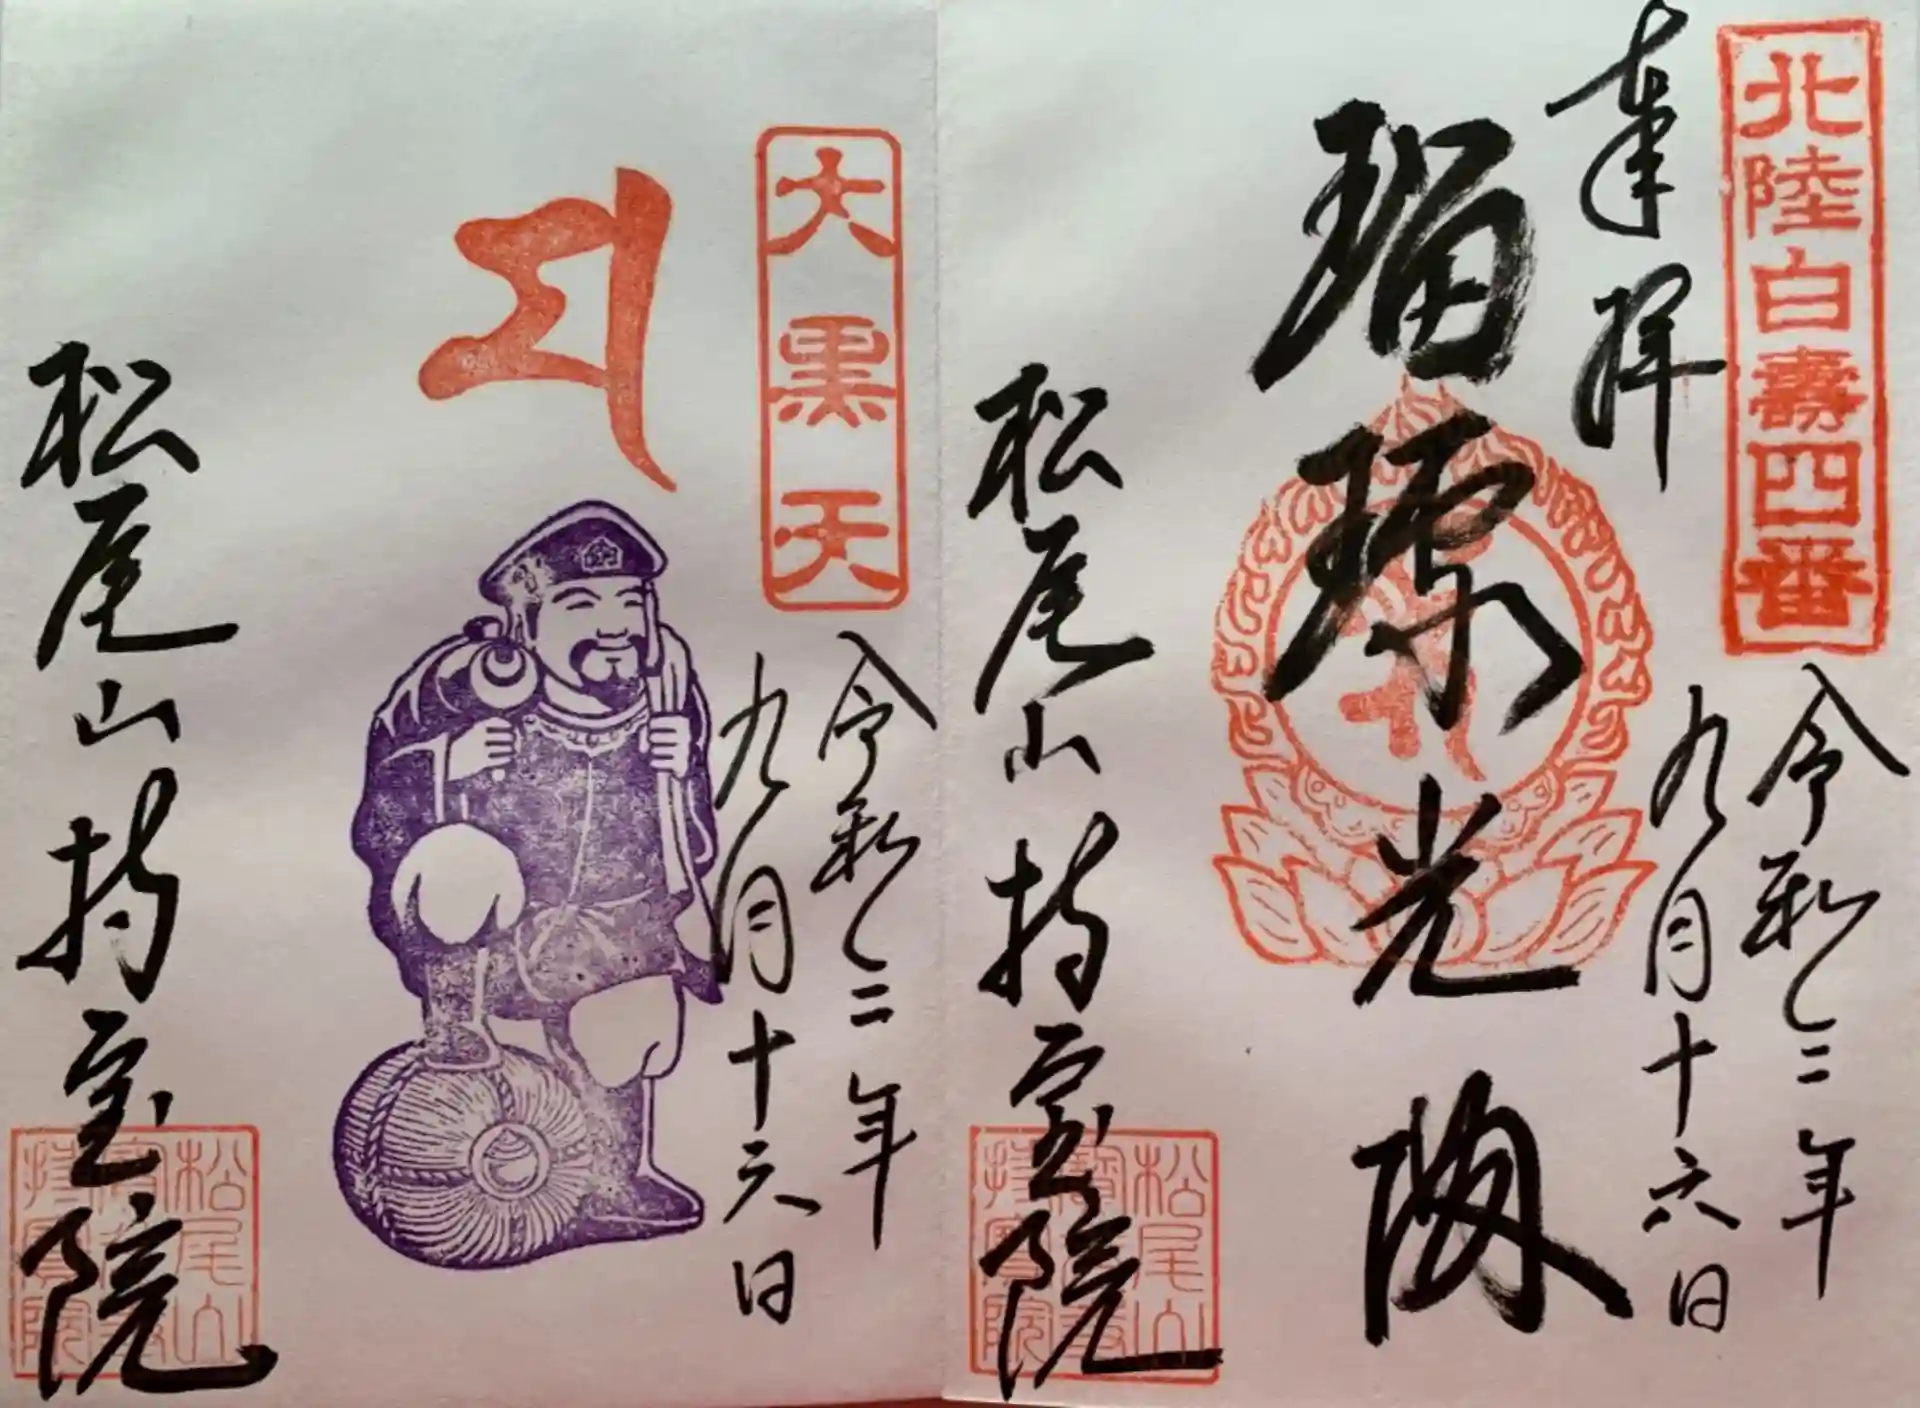 北陸白壽四番
奉拝
令和二年
九月十六日
瑠璃光殿
松尾山持宝院
松尾山
持寶院
大黒天
令和二年
九月十六日
松尾山持宝院
松尾山
持寶院